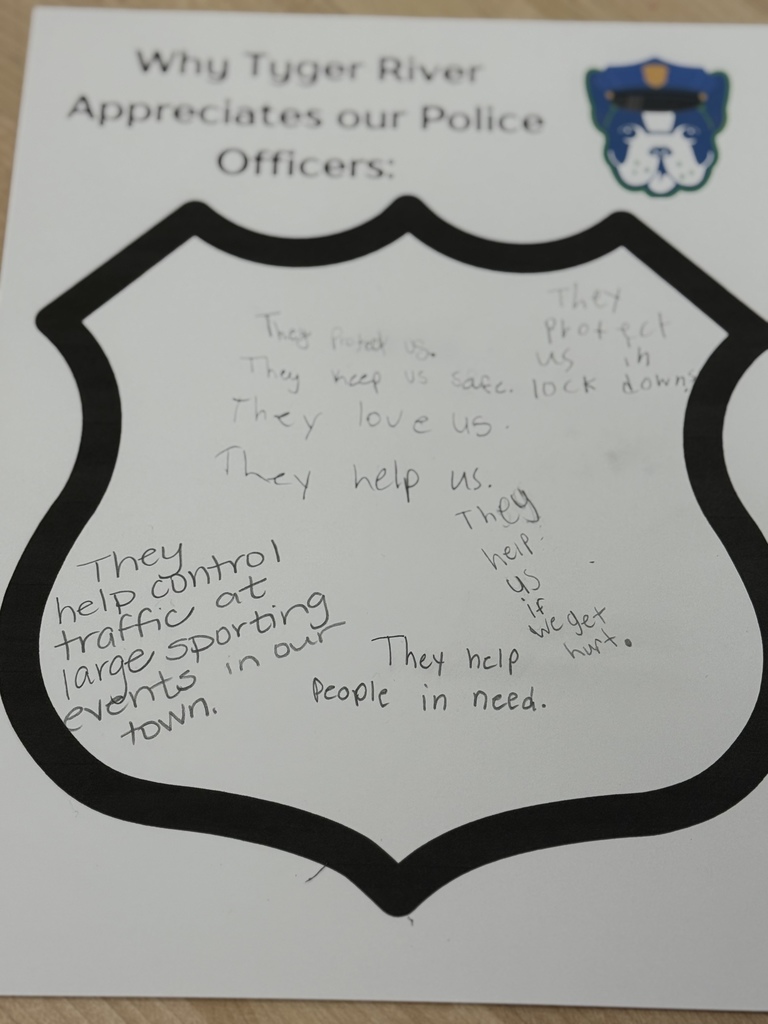 Why Tyger River
Appreciates our Police
Officers:
They Protect us.
They keep us safe.
They love us.
They help us.
They
protect
us in
lock downs
They
help
us
if
we get
hurt.
They
help control
traffic at
large sporting
events in our
town.
They help
People in need.